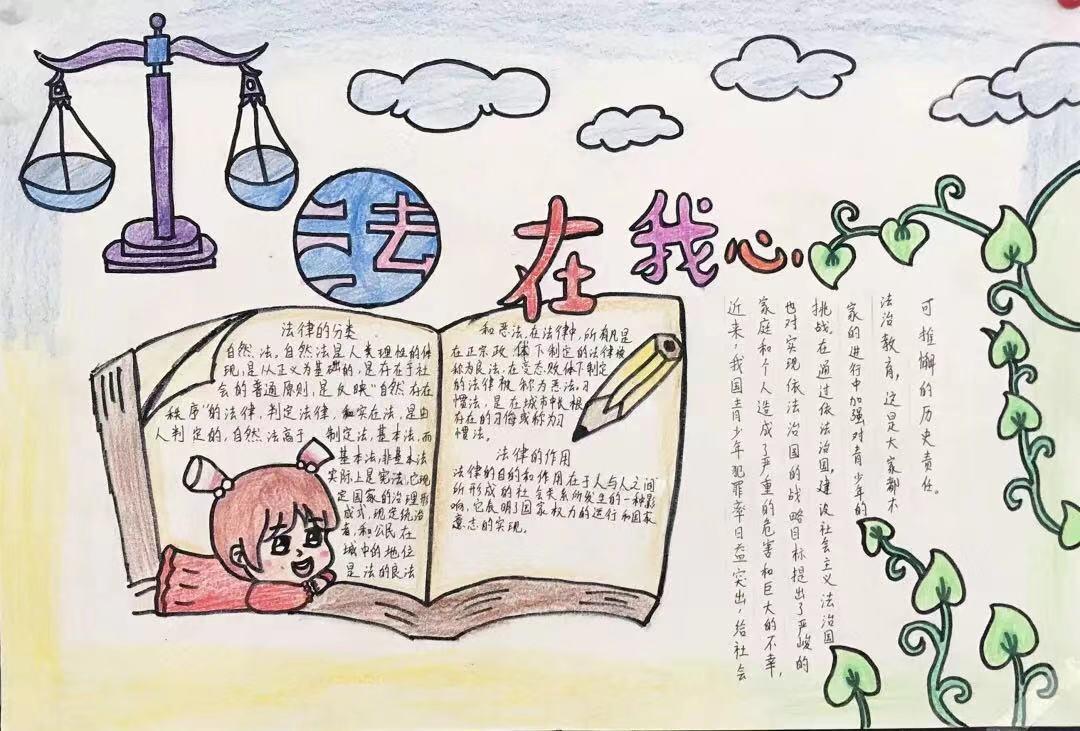 法在我心
法律的分类
自然法,自然法是人类理性的体
现,是从主义为基础的,是存在于社
会的普通原则,是反映“自然存在
秩序”的法律,判定法律和实在法,是由
人判定的,自然法高于制定法,基本法,而
基本法,非基本法
实际上是宪法,它规
定国家的治理形
成式,规定统治
者,和公民在
城中的地位
是法的良法
和恶法,在法律中,所有凡是
在正宗政体下制定的法律被
称为良法,在变态政体下制定
的法律被称为恶法,习
惯法,是在城市中长根
存在的习俗或称为习
惯法。
法律的作用
法律的目的和作用在于人与人之间
所形成的社会关系所发生的一种影
响,它展明了国家权力的运行和国家
意志的实现。
近来,我国青少年犯罪率日益突出,给社会
家庭和个人造成了严重的危害和巨大的不幸,
也对实现依法治国的战略目标提出了严峻的
挑战,在通过依法治国,建设社会主义法治国
家的进行中加强对青少年的
法治教育,这是大家都不
可推懈的历史责任。